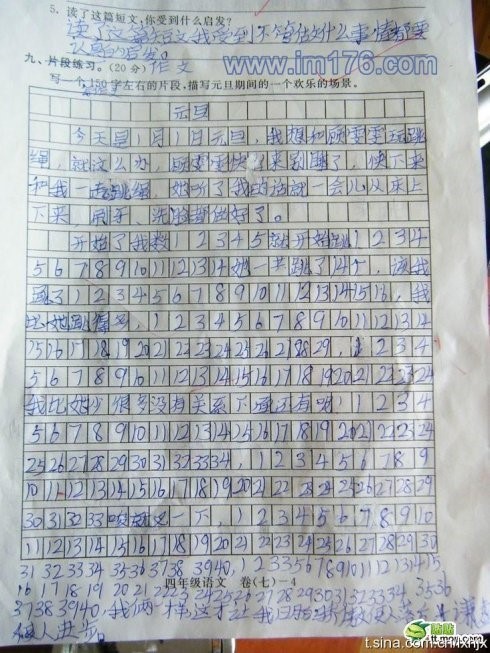 5. 读了这篇短文,你受到什么启发?
读了这篇短文我受到不管做什么事情都要
认真的启发。
九、片段练习。(20分) 作文
www.im176.com
写一个150字左右的片段,描写元旦期间的一个欢乐的场景。
元旦
今天是1月1日元旦,我想和顾雯雯玩跳
绳,就这么办,顾雯雯快起来别睡了,快下来
和我一起跳绳,她听了我的话就一会儿从床上
下来,刷牙、洗脸都做好了。
开始了我数12345就开始跳1234
567891011121314她一共跳了14个,该我
跳了12345678910111213141516,我
比她跳得多,1234567891011121314
151617181920212223242526272829,1234
56789101112131415161718192021222324
我比她少很多没有关系下次还有呀,1234
56789101112131415161718192021222324
25262728293031323334,123456789
1011121314151617181920212223242526272829
30313233 一下,12345678910
1112131415161718192021222324252627282930
31323334353637383940,123356789101112131415
四年级语文 卷(七)-4
16171819202122232425262728293031323334,3536
37383940,我俩一样这才让我日
人进步。
t.sina.com.cn/lxhjx